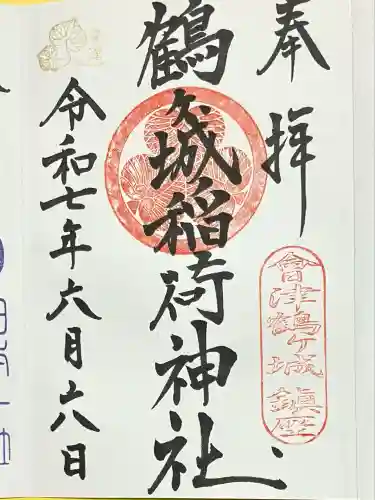 奉拝
會津鶴ヶ城鎮座
鶴ヶ城稲荷神社
令和七年六月六日